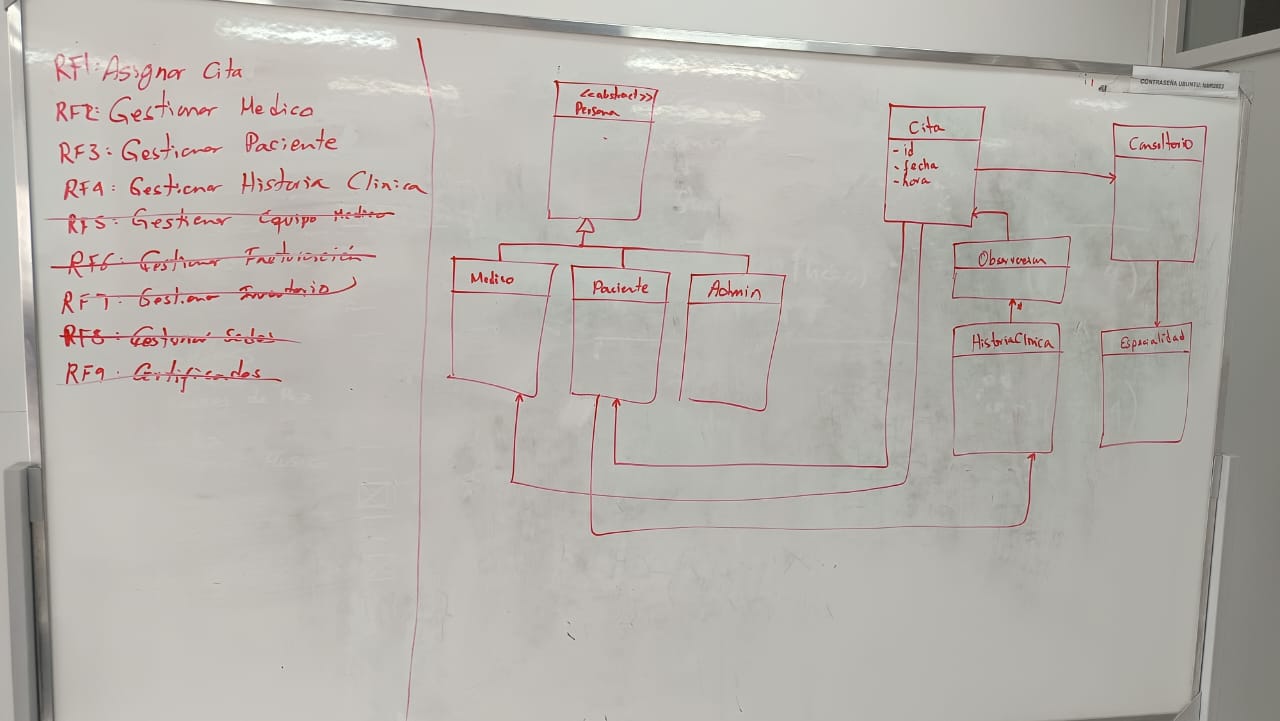 RF1: Asignar Cita
RF2: Gestionar Medico
RF3: Gestionar Paciente
RF4: Gestionar Historia Clinica
RF5: Gestionar Equipo Medico
RF6: Gestionar Facturación
RF7: Gestionar Inventario
RF8: Gestionar Sedes
RF9: Certificados
<<abstract>>
Persona
Medico
Paciente
Admin
Cita
- id
- fecha
- hora
Consultorio
Observacion
HistoriaClinica
Especialidad
CONTRASEÑA UBUNTU: